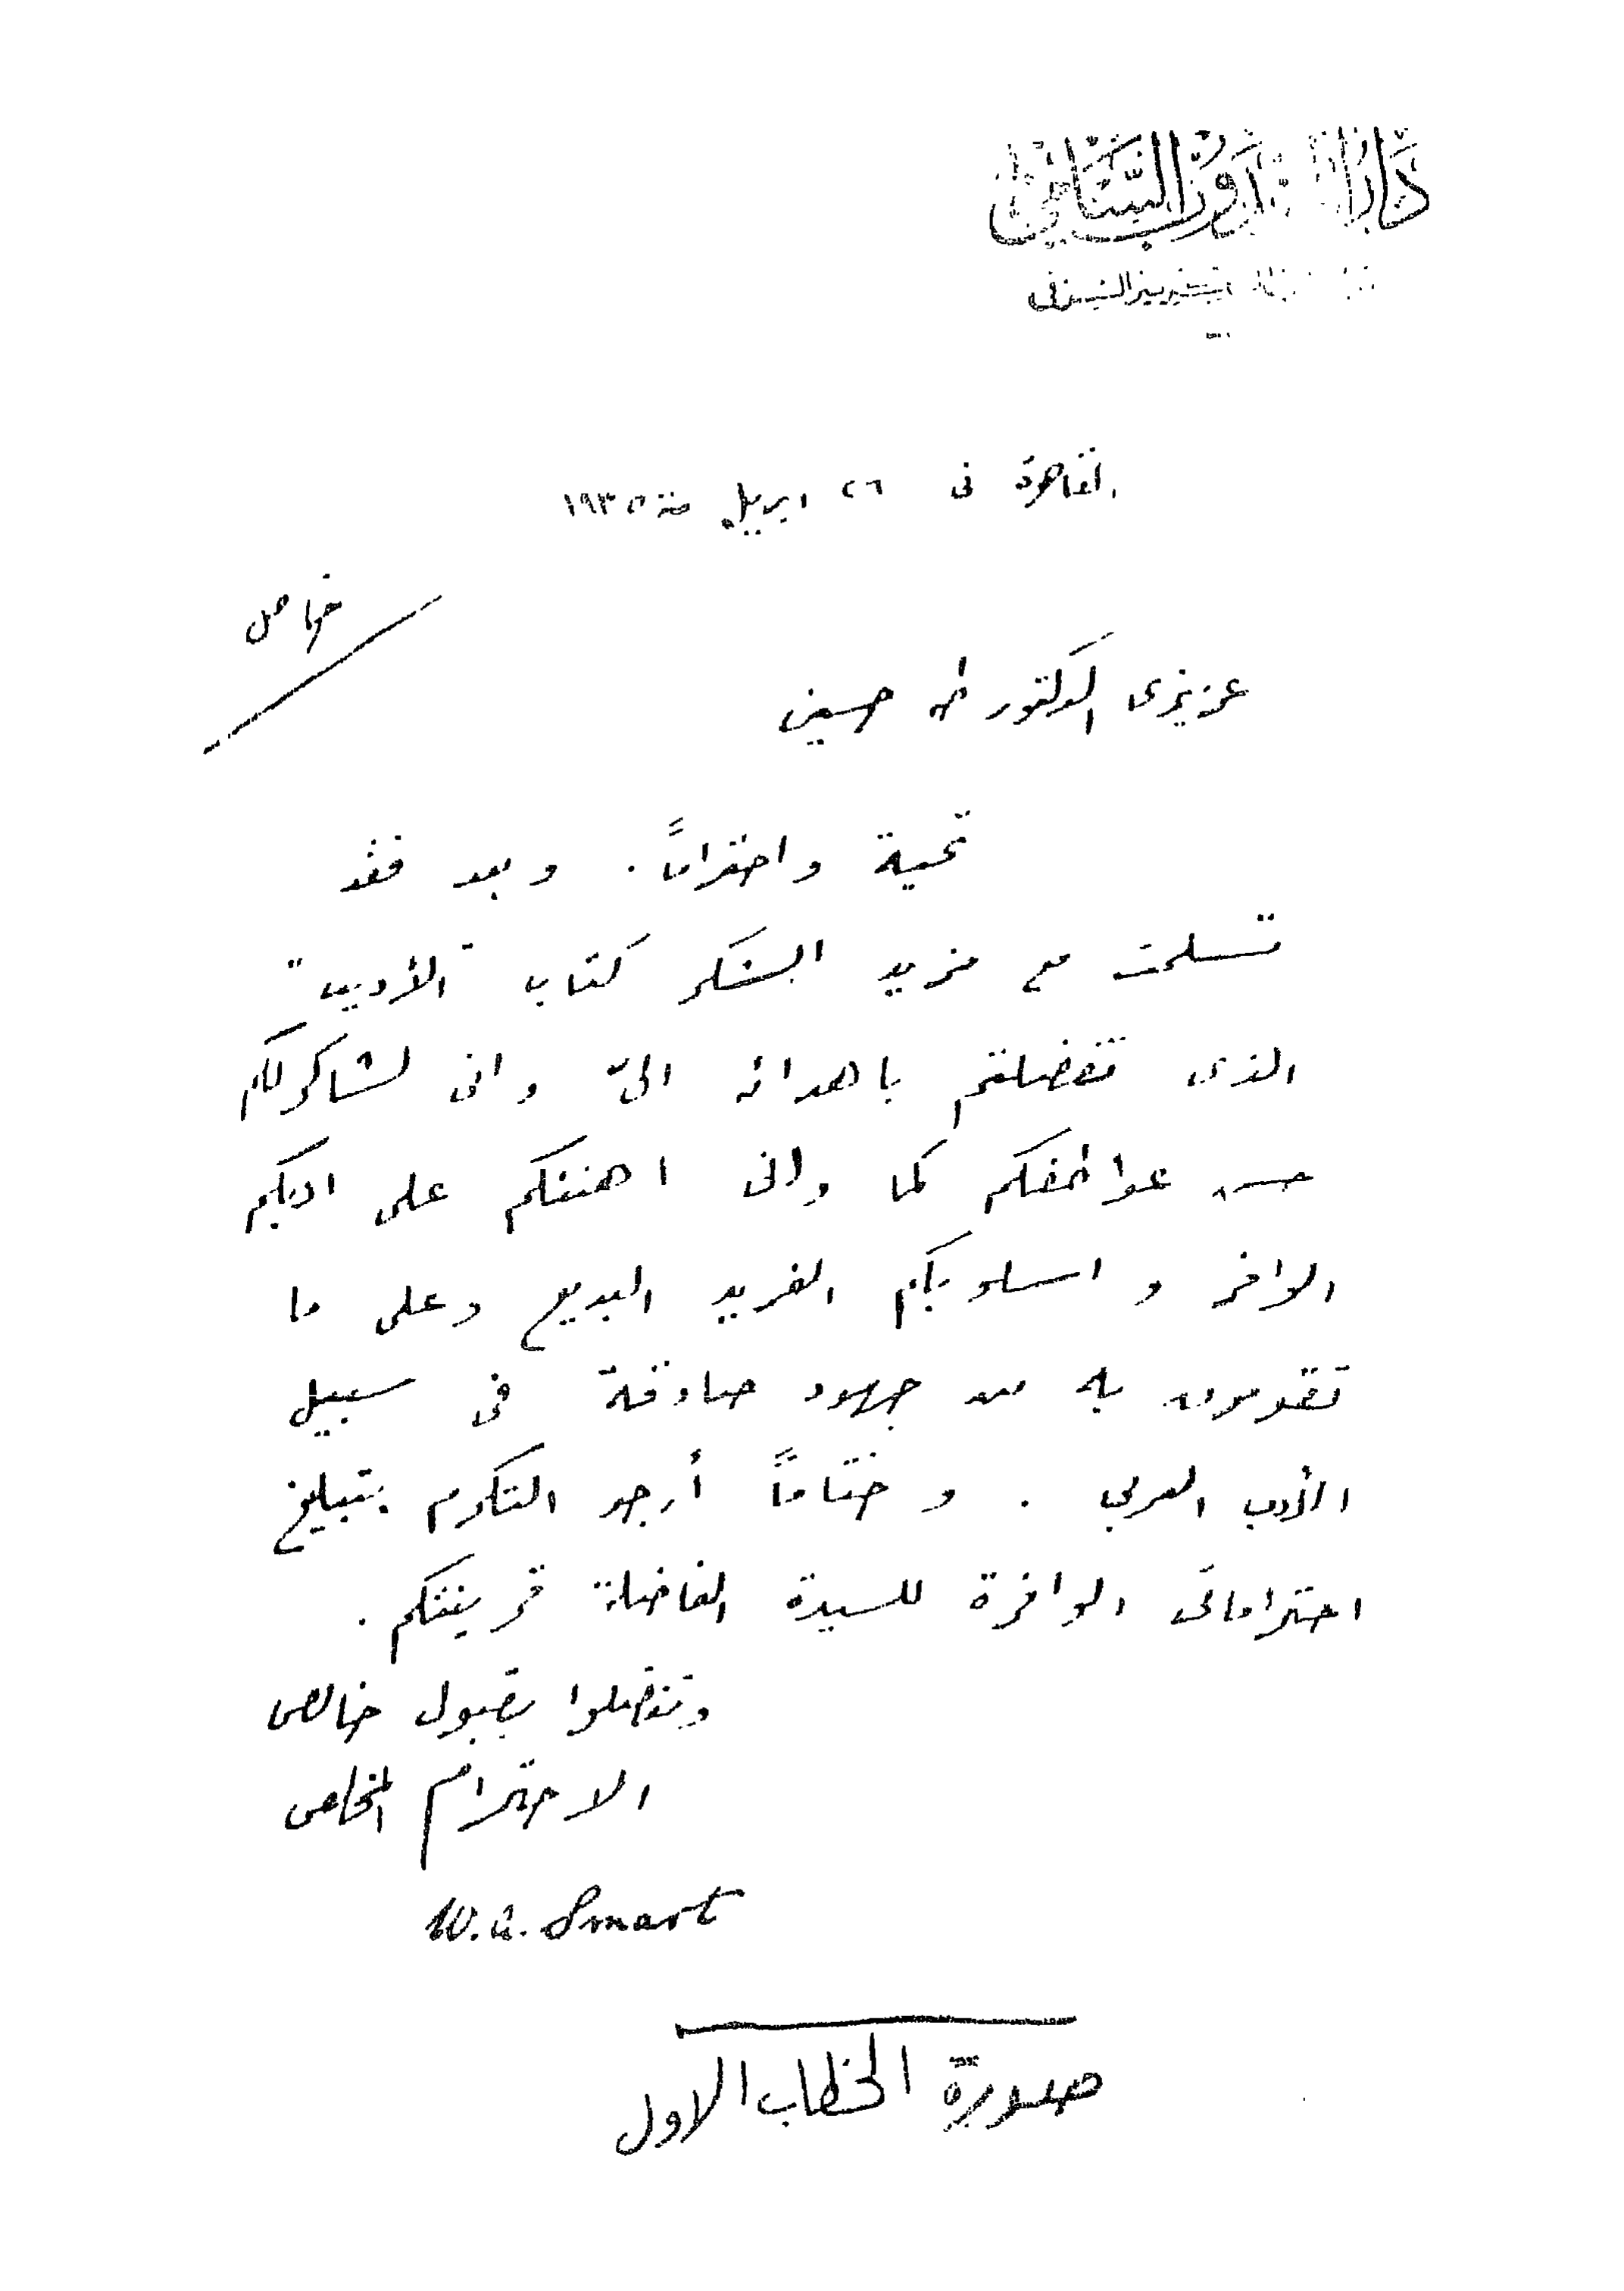 دار المندوب السامى
القاهرة فى ٢٦ ابريل سنة ١٩٣٥
خاص
عزيزى الدكتور طه حسين
تحية واحتراماً . وبعد فقد
تسلمت مع مزيد الشكر كتاب "الأديب"
الذى تفضلتم باهدائه الىّ وانى لشاكر لكم
حسن عواطفكم كما وانى اهنئكم على ادبكم
الوافر واسلوبكم الفريد البديع وعلى ما
تقومون به من جهود صادقة فى سبيل
الأدب العربى . وختاماً أرجو التكرم بتبليغ
احتراماتى الوافرة للسيدة الفاضلة قرينتكم .
وتفضلوا بقبول خالص
الاحترام الخاص
W. A. Smart
صورة الخطاب الاول